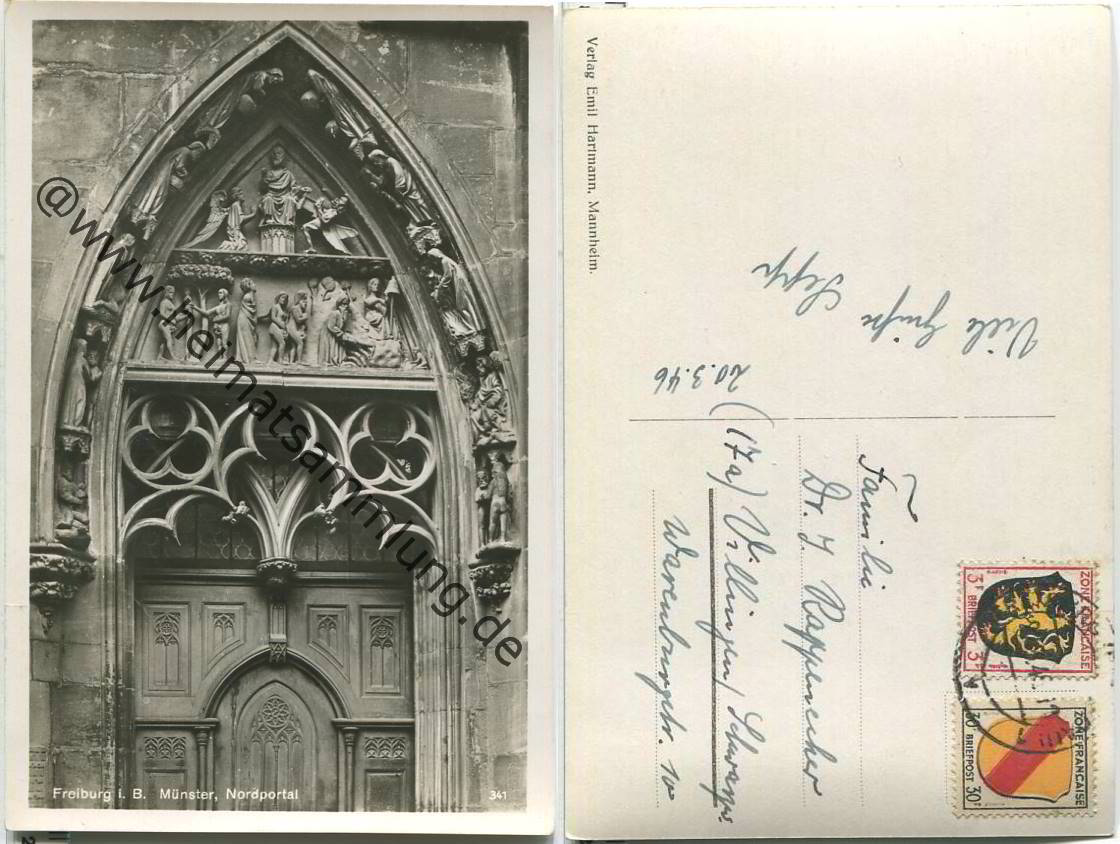 Freiburg i. B. Münster, Nordportal
341
@www.heimatsammlung.de
Verlag Emil Hartmann, Mannheim.
Viele Grüße
Sepp
20.3.46
Familie
Dr. J. Rappenecker
(17a) Villingen/Schwarzw.
Warenburgstr. 10
ZONE FRANÇAISE
3 F BRIEFPOST 3 F
ZONE FRANÇAISE
30 F BRIEFPOST 30 F